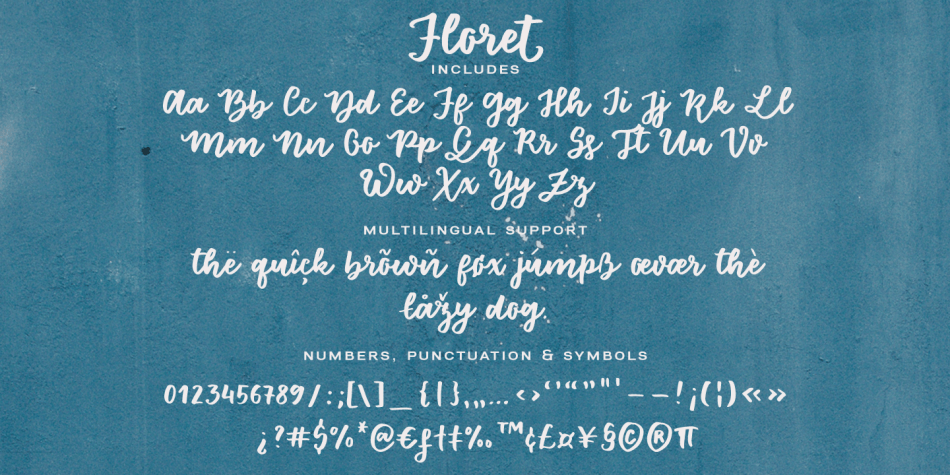 Floret
INCLUDES
Aa Bb Cc Dd Ee Ff Gg Hh Ii Jj Kk Ll
Mm Nn Oo Pp Qq Rr Ss Tt Uu Vv
Ww Xx Yy Zz
MULTILINGUAL SUPPORT
thë quîçk brõwñ føx júmpß œvær thè
łåžy dog.
NUMBERS, PUNCTUATION & SYMBOLS
0123456789/:;[\]_{|},„…‹›‘’“”"'–—!¡(¦)«»
¿?#$%*@€ƒ†‡‰™¢£¤¥§©®¶